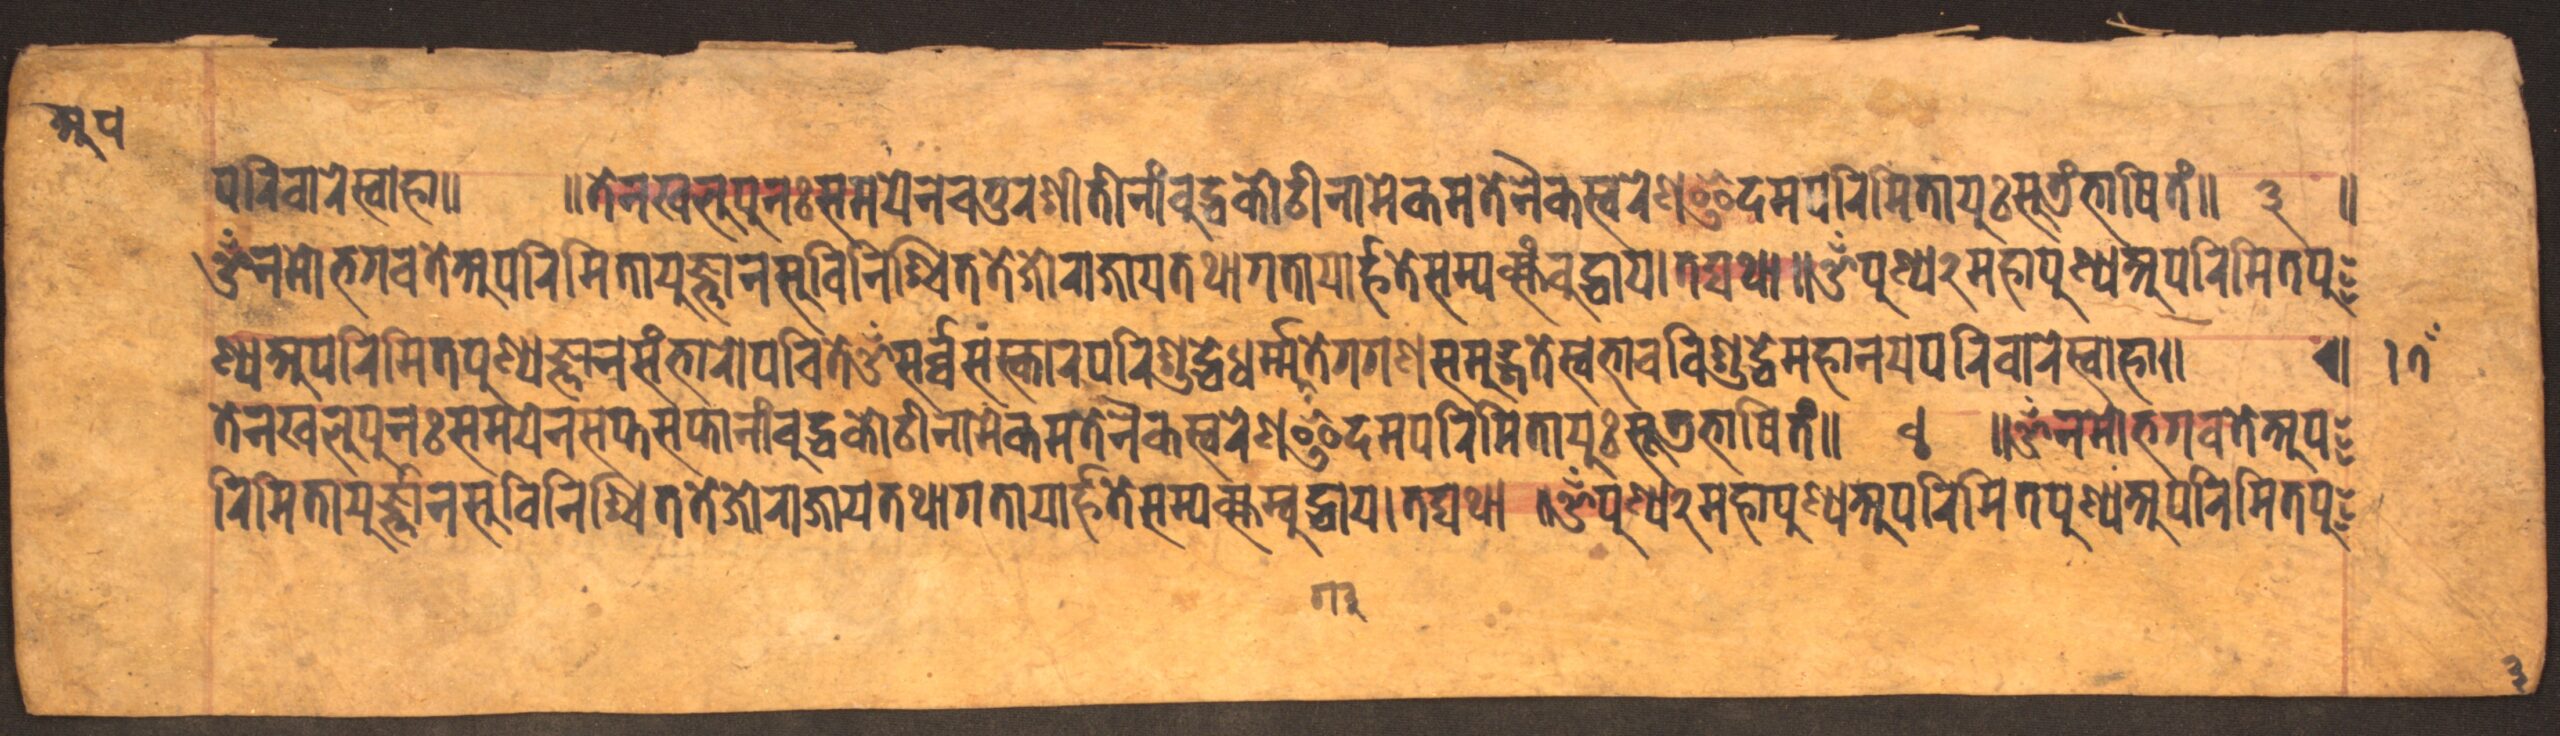 अप
परिवारे स्वाहा॥ ॥तेन खलु पुनः समयेन चतुरशीतीनां बुद्धकोटीनामेकमतेनैकस्वरेण इदमपरिमितायुः सूत्रं भाषितं॥ ३ ॥
ॐ नमो भगवते अपरिमितायुज्ञानसुविनिश्चिततेजोराजाय तथागतायार्हते सम्यक्सं बुद्धाय। तद्यथा॥ ॐ पुण्य २ महापुण्य अपरिमितपु
ण्य अपरिमितपुण्यज्ञानसंभारोपचिते ॐ सर्व्वसंस्कारपरिशुद्धे धर्म्मते गगणसमुद्गते स्वभावविशुद्धे महानयपरिवारे स्वाहा॥ ॥
तेन खलु पुनः समयेन सप्तसप्तानां बुद्धकोटीनामेकमतेनैकस्वरेण इदमपरिमितायुः सूत्र भाषितं॥ ४ ॥ॐ नमो भगवते अप
रिमितायुर्ज्ञानसुविनिश्चिततेजोराजाय तथागतायार्हते सम्यक्सम्बुद्धाय। तद्यथा ॥ॐ पुण्य २ महापुण्य अपरिमितपुण्य अपरिमितपु
३